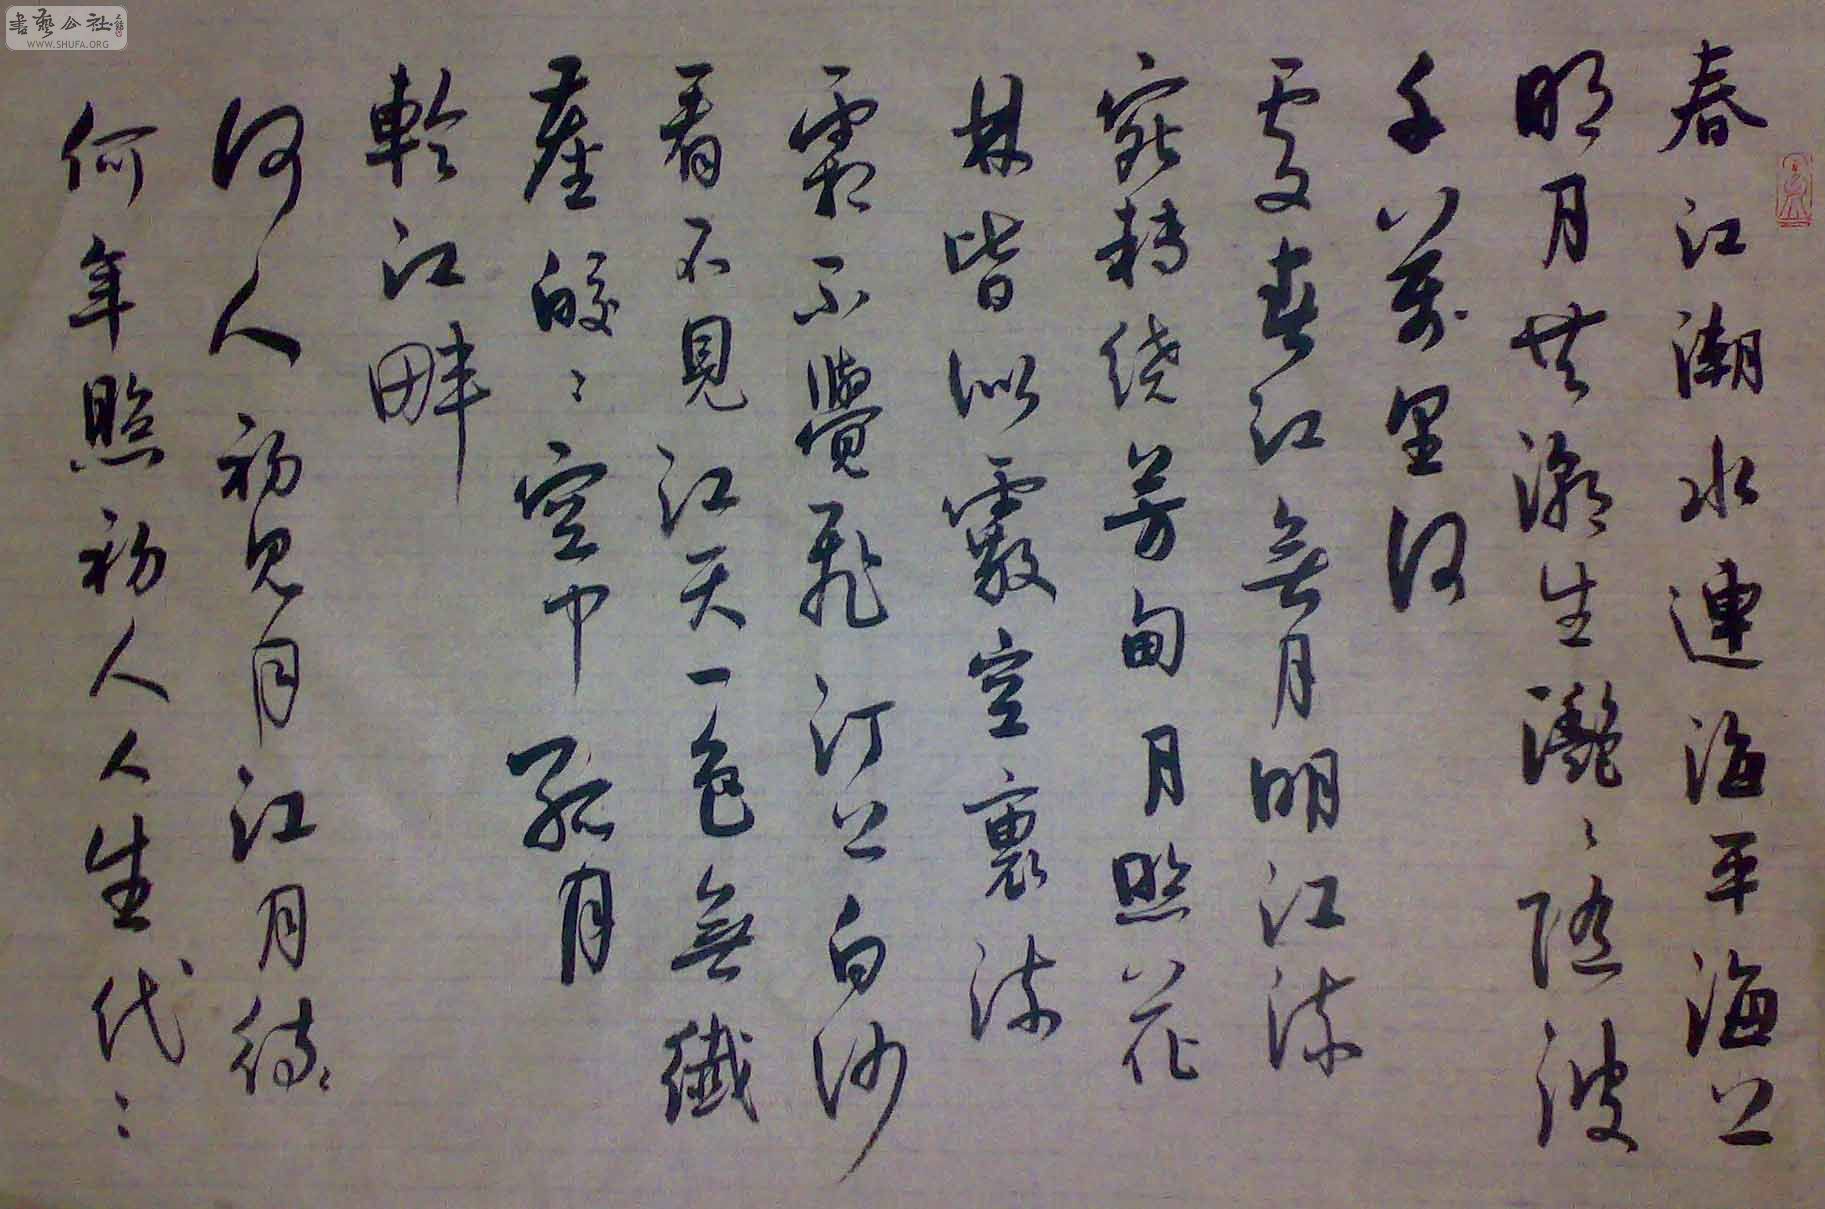 書藝公社
WWW.SHUFA.ORG
春江潮水連海平海上
明月共潮生灩〻隨波
千萬里何
處春江無月明江流
宛轉繞芳甸月照花
林皆似霰空裏流
霜不覺飛汀上白沙
看不見江天一色無纖
塵皎〻空中孤月
輪江畔
何人初見月江月待
何年照初人人生代〻